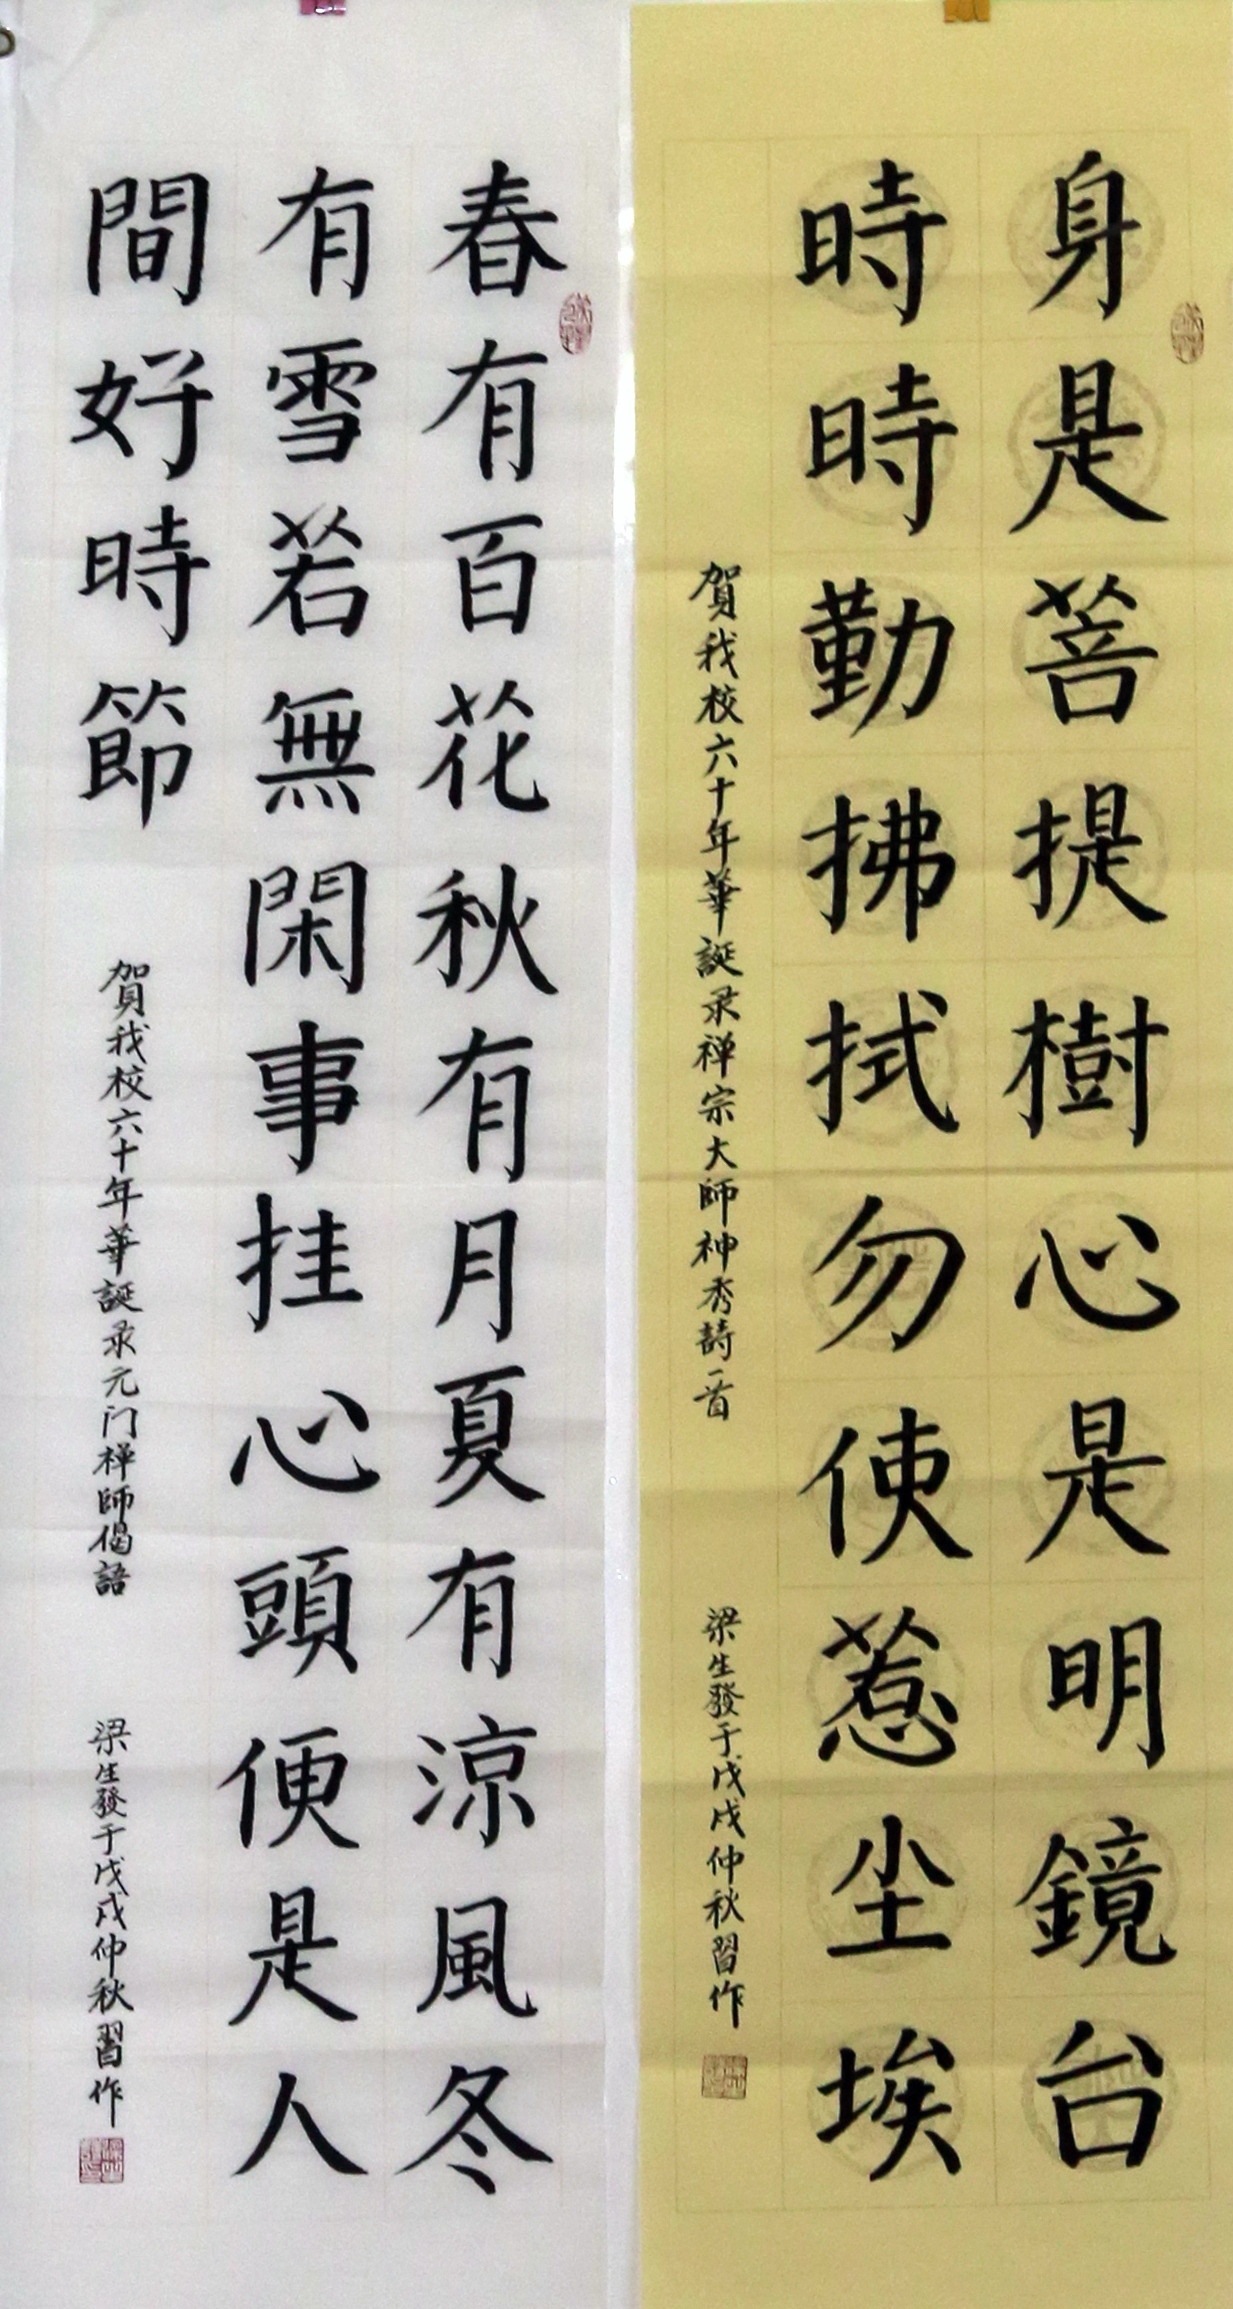 身是菩提樹心是明鏡台
時時勤拂拭勿使惹尘埃
賀我校六十年華誕录禅宗大師神秀詩一首
梁生發于戊戌仲秋習作
春有百花秋有月夏有涼風冬
有雪若無閑事挂心頭便是人
間好時節
賀我校六十年華誕录元门禅師偈語
梁生發于戊戌仲秋習作